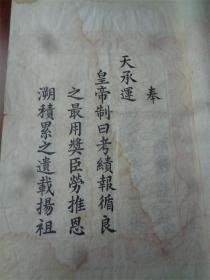 奉
天承運
皇帝制曰考績報循良
之最用獎臣勞推恩
溯積累之遺載揚祖